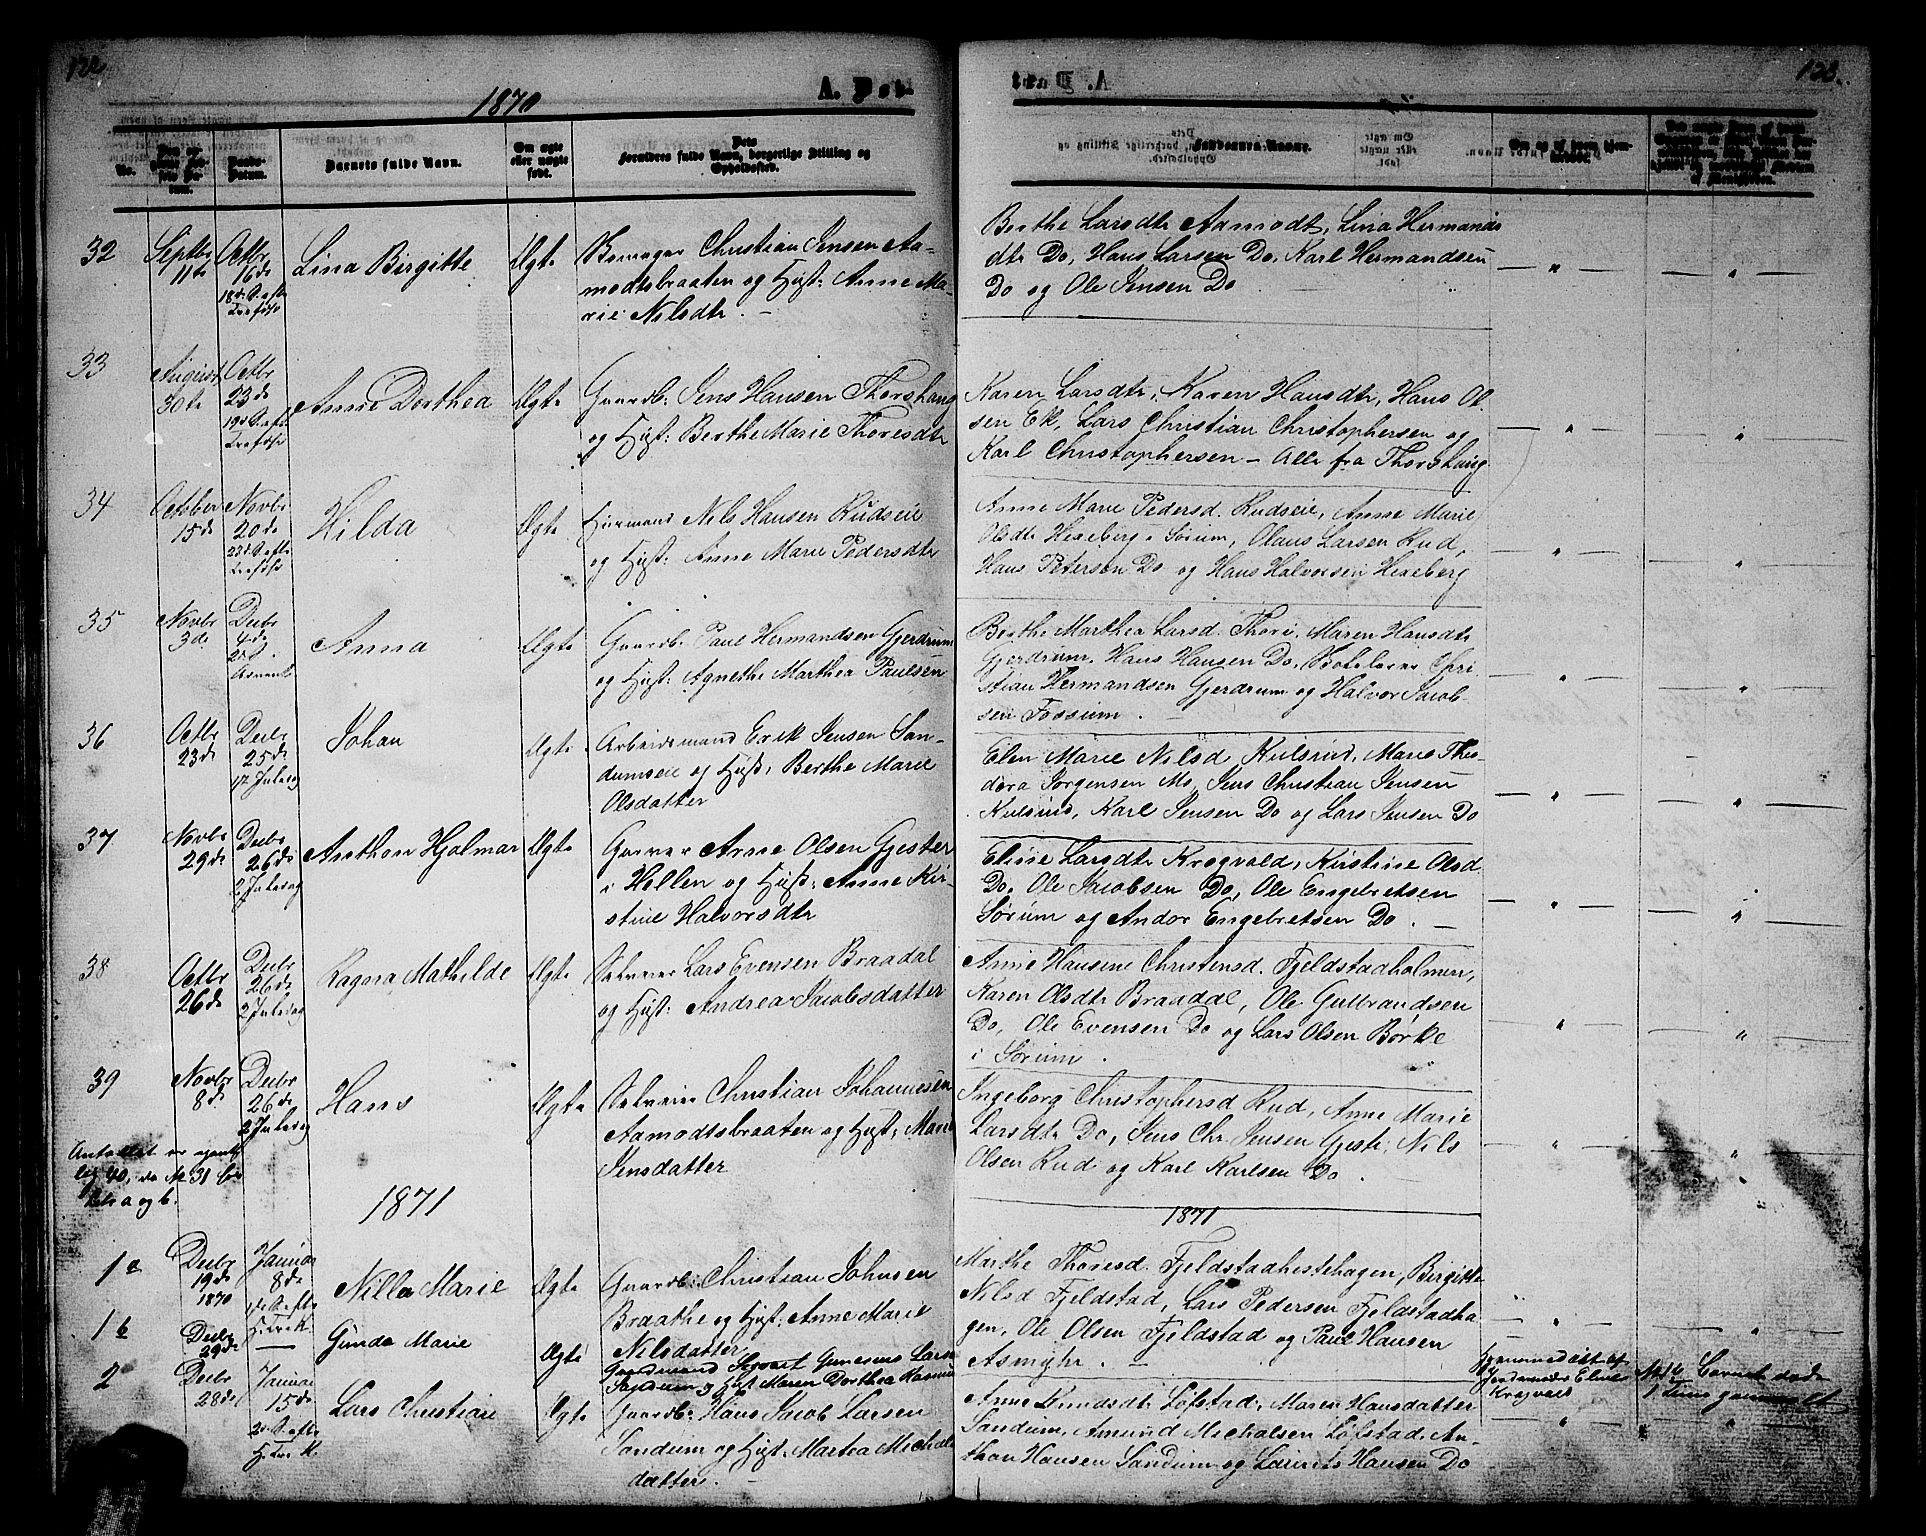 122
1870
A. Død
No.
Barnets fulde Navn.
Om ægte eller uægte født.
Forældres fulde Navn, borgerlige Stilling og Opholdssted.
32
Septbr 11te
Octbr 16de
18de S. eft. Trefdsh
Lina Birgitte
Ægte
Christian Jensen Aa-
modtsbraaten og Hust: Anne Ma-
rie Nilsdtr. –
33
August 30te
Octbr 23de
19de S. eft. Trefdsh
Anne Dorthea
Ægte
Gaardb: Jens Hansen Thorshaug
og Hust: Berthe Marie Thoresdtr
34
October 15de
Novbr 20de
23de S. eft. Trefdsh
Hilda
Ægte
Huusmand Nils Hansen Rudseie
og Hust: Anne Marie Pedersdtr
35
Novbr 3de
Decbr 4de
2de S. Advent
Anna
Ægte
Gaardb: Paul Hermandsen Gjerdrum
og Hust: Agnethe Marthea Paulsen
36
Octbr 23de
Decbr 25de
1ste Juledag
Johan
Ægte
Arbeidsmand Erik Jensen San-
dumseie og Hust: Berthe Marie
Olsdatter
37
Novbr 29de
Decbr 26de
2 Juledag
Anthon Hjalmar
Ægte
Garver Arne Olsen Gjester
i Hollen og Hust: Anne Kir-
stine Halvorsdtr
38
Octbr 26de
Decbr 26de
2 Juledag
Ragna Mathilde
Ægte
Selveier Lars Evensen Braadal
og Hust: Andrea Jacobsdatter
39
Novbr 8de
Decbr 26de
2 Juledag
Hans
Ægte
Selveier Christian Johannesen
Aamodtsbraaten og Hust: Marie
Jensdatter
Antallet er egent-
lig 40, da No 31 har
a og b.
1871
1a
Decbr 19de 1870
Januar 8de
1ste S. eft. H. Tre K.
Nilla Marie
Ægte
Gaardb: Christian Johnsen
Braathe og Hust: Anne Marie
Nilsdatter
1b
Decbr 29de
—
Gunda Marie
Ægte
Gaardmand Syvert Gunersens Larsen
Sandum og Hust Maren Dorthea Rasmus
2
Decbr 28de
Januar 15de
2de S. eft. H. Tre K.
Lars Christian
Ægte
Gaardb: Hans Jacob Larsen
Sandum og Hust: Martea Michels
datter. –
123.
Faddernes Navne.
Berthe Larsdtr Aamodt, Lina Hermands
dtr Do, Hans Larsen Do, Karl Hermandsen
Do og Ole Jensen Do
Karen Larsdtr, Karen Hansdtr, Hans Ol-
sen Ek, Lars Christian Christophersen og
Karl Christophersen – Alle fra Thorshaug
Anne Marie Pedersd. Rudseie, Anne Marie
Olsdtr Hexeberg i Sørum, Olaus Larsen Rud,
Hans Petersen Do og Hans Halvorsen Hexeberg
Berthe Marthea Larsd. Thori, Maren Hansdtr
Gjerdrum, Hans Hansen Do, Chri-
stian Hermandsen Gjerdrum og Halvor Jacob-
sen Fossum. –
Elen Marie Nilsd Kulsrud, Marie Theo-
dora Jørgensen Mo, Jens Christian Jensen
Kulsrud, Karl Jensen Do og Lars Jensen Do
Eline Larsdtr Krogvold, Kirstine Olsd
Do, Ole Jacobsen Do, Ole Engebretsen
Sørum og Andor Engebretsen Do. –
Anne Hansine Christensd. Fjeldstadholmen,
Karen Olsdtr Braadal, Ole Gulbrandsen
Do, Ole Evensen Do og Lars Olsen Børke
i Sørum.
Ingeborg Christophersd Rud, Anne Marie
Larsdtr Do, Jens Chr. Jensen Gjesti, Nils
Olsen Rud og Karl Karlsen Do.
1871
Marthe Thoresd. Fjeldstadhestehagen, Birgitte
Nilsd Fjeldstad, Lars Pedersen Fjeldstadha-
gen, Ole Olsen Fjeldstad og Paul Hansen
Asmyhr. –
Hjemmedøbt af Jordemoder Eline Krogvold
Barnet døde
1 time gammelt
Anne Knudsdtr Løfstad, Maren Hansdatter
Sandum, Amund Michalsen Løfstad, An-
thon Hansen Sandum og Laurits Hansen Do